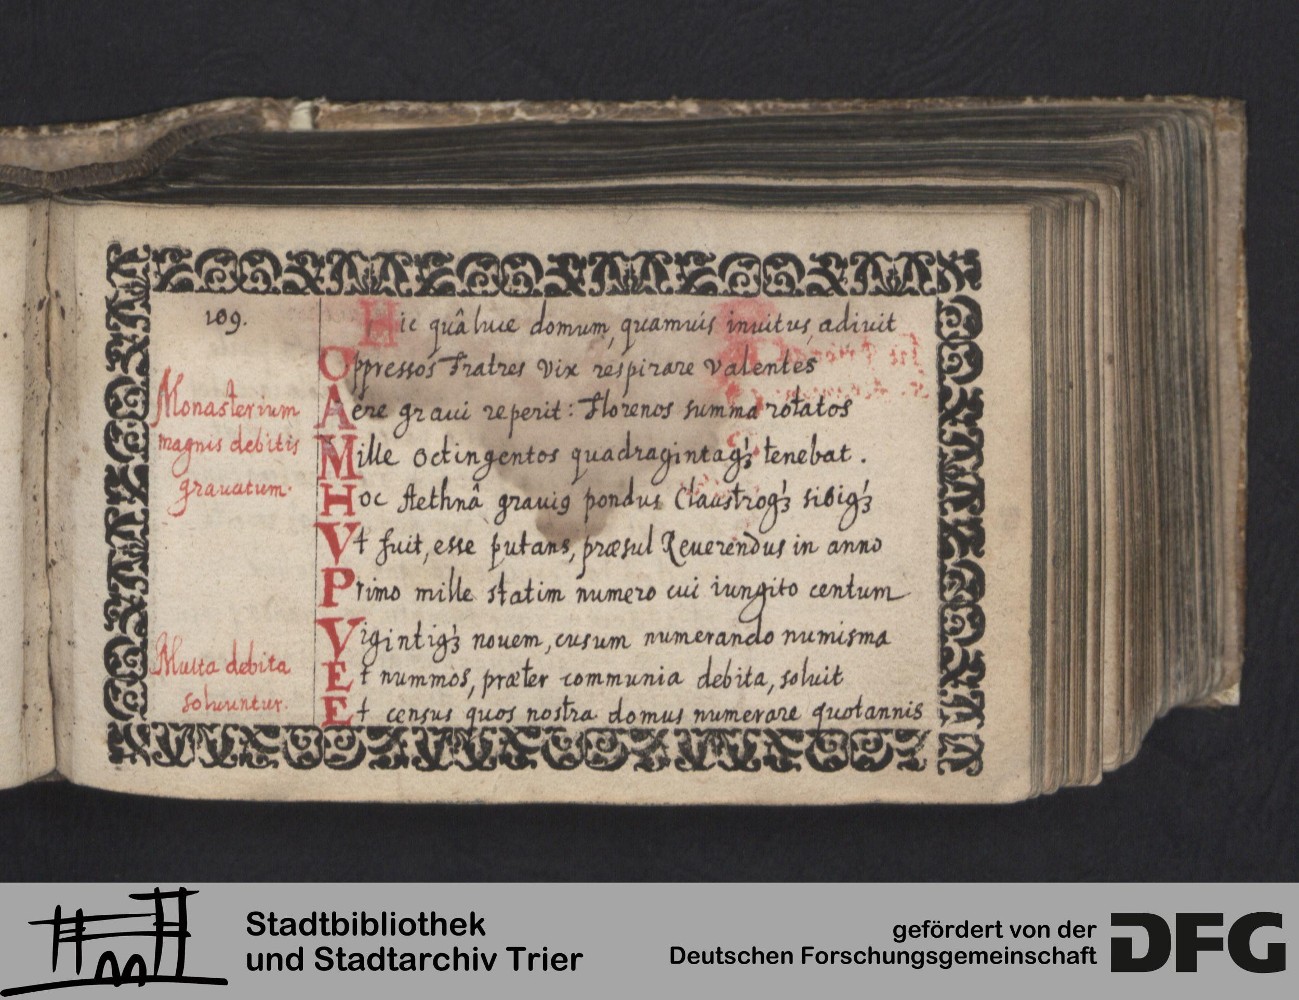 109.
Hic quâ luce domum, quamuis inuitus, adiuit
Oppressos Fratres vix respirare valentes
Aere graui reperit: Florenos summa rotatos
Mille octingentos quadragintaq́ʒ tenebat.
Hoc Aethnâ grauiꝯ pondus Claustroq́ʒ sibiq́ʒ
Vt fuit, esse putans, præsul Reuerendus in anno
Primo mille statim numero cui iungito centum
Vigintiq́ʒ nouem, cusum numerando numisma
Et nummos, præter communia debita, soluit
Et census quos nostra domus numerare quotannis
Monasterium
magnis debitis
grauatum.
Multa debita
soluuntur.
Stadtbibliothek
und Stadtarchiv Trier
gefördert von der
Deutschen Forschungsgemeinschaft
DFG